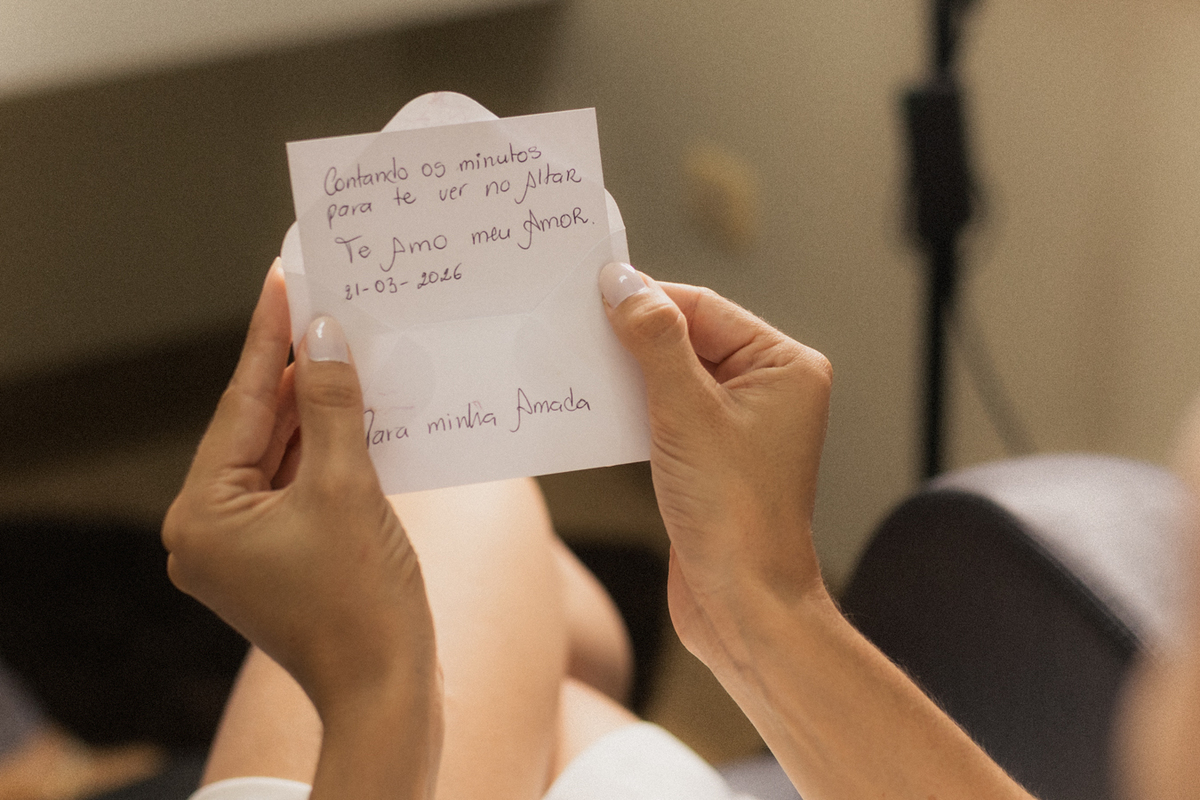 Contando os minutos
para te ver no Altar
Te Amo meu AmoR.
21-03-2026
Para minha Amada